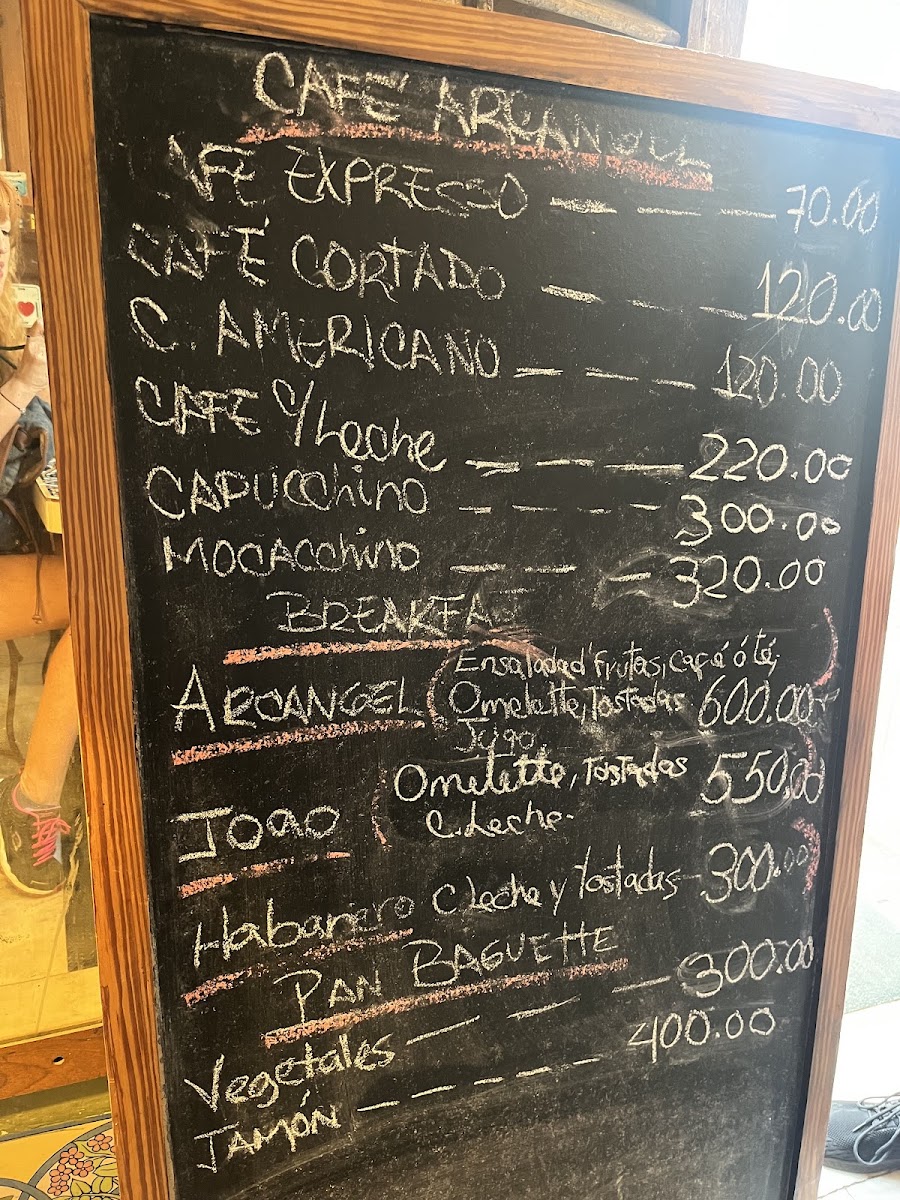 CAFÉ ARCANGEL
CAFÉ EXPRESSO — — — 70.00
CAFÉ CORTADO — — — 120.00
C. AMERICANO — — — 120.00
CAFE C/Leche — — — 220.00
CAPUCChiNO — — — — 300.00
MOCACChiNO — — — 320.00
BREAKFAST
Ensalada d' frutas, café ó té,
ARCANGEL Omelette, Tostadas 600.00
Jugo
Omelette, Tostadas 550.00
JOAO C. Leche.
Habanero C leche y tostadas - 300.00
PAN BAGUETTE
Vegetales — — — 300.00
JAMÓN — — — — — 400.00